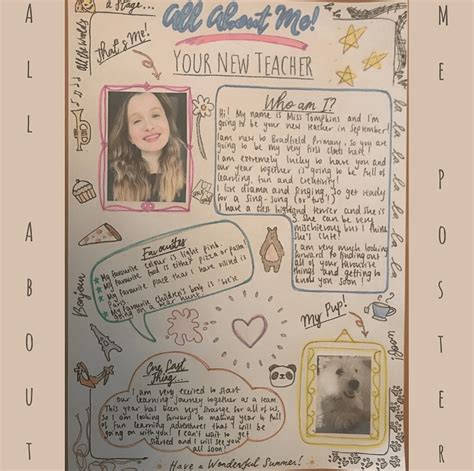 ALL ABOUT
ME POSTER
a Stage...
All the World's
All About Me!
That's Me!
YOUR NEW TEACHER
Who am I?
Hi! My name is Miss Tompkins and I'm
going to be your new teacher in September!
I am new to Bradfield Primary, so you are
going to be my very first class here!
I am extremely lucky to have you and
our year together is going to be full of
learning, fun and creativity!
I love drama and singing. So get ready
for a sing-song (or two!)
I have a west highland terrier and she is
She can be very
mischievous, but I think
she's cute!
I am very much looking
forward to finding out
all of your favourite
things and getting to
know you soon!
la la la la la la la
Favourites
My favourite colour is light pink.
My favourite food is either pizza or pasta!
My favourite place that I have visited is
Paris
My favourite children's book is 'We're
going on a bear hunt'
Bonjour
My Pup!
woof!
One Last
Thing...
I am very excited to start
our learning journey together as a team.
This year has been very strange for all of us,
so I am looking forward to making year 4 full
of fun learning adventures that I will be
going on with you! I can't wait to get
started and I will see you
all soon!
Have a Wonderful Summer!